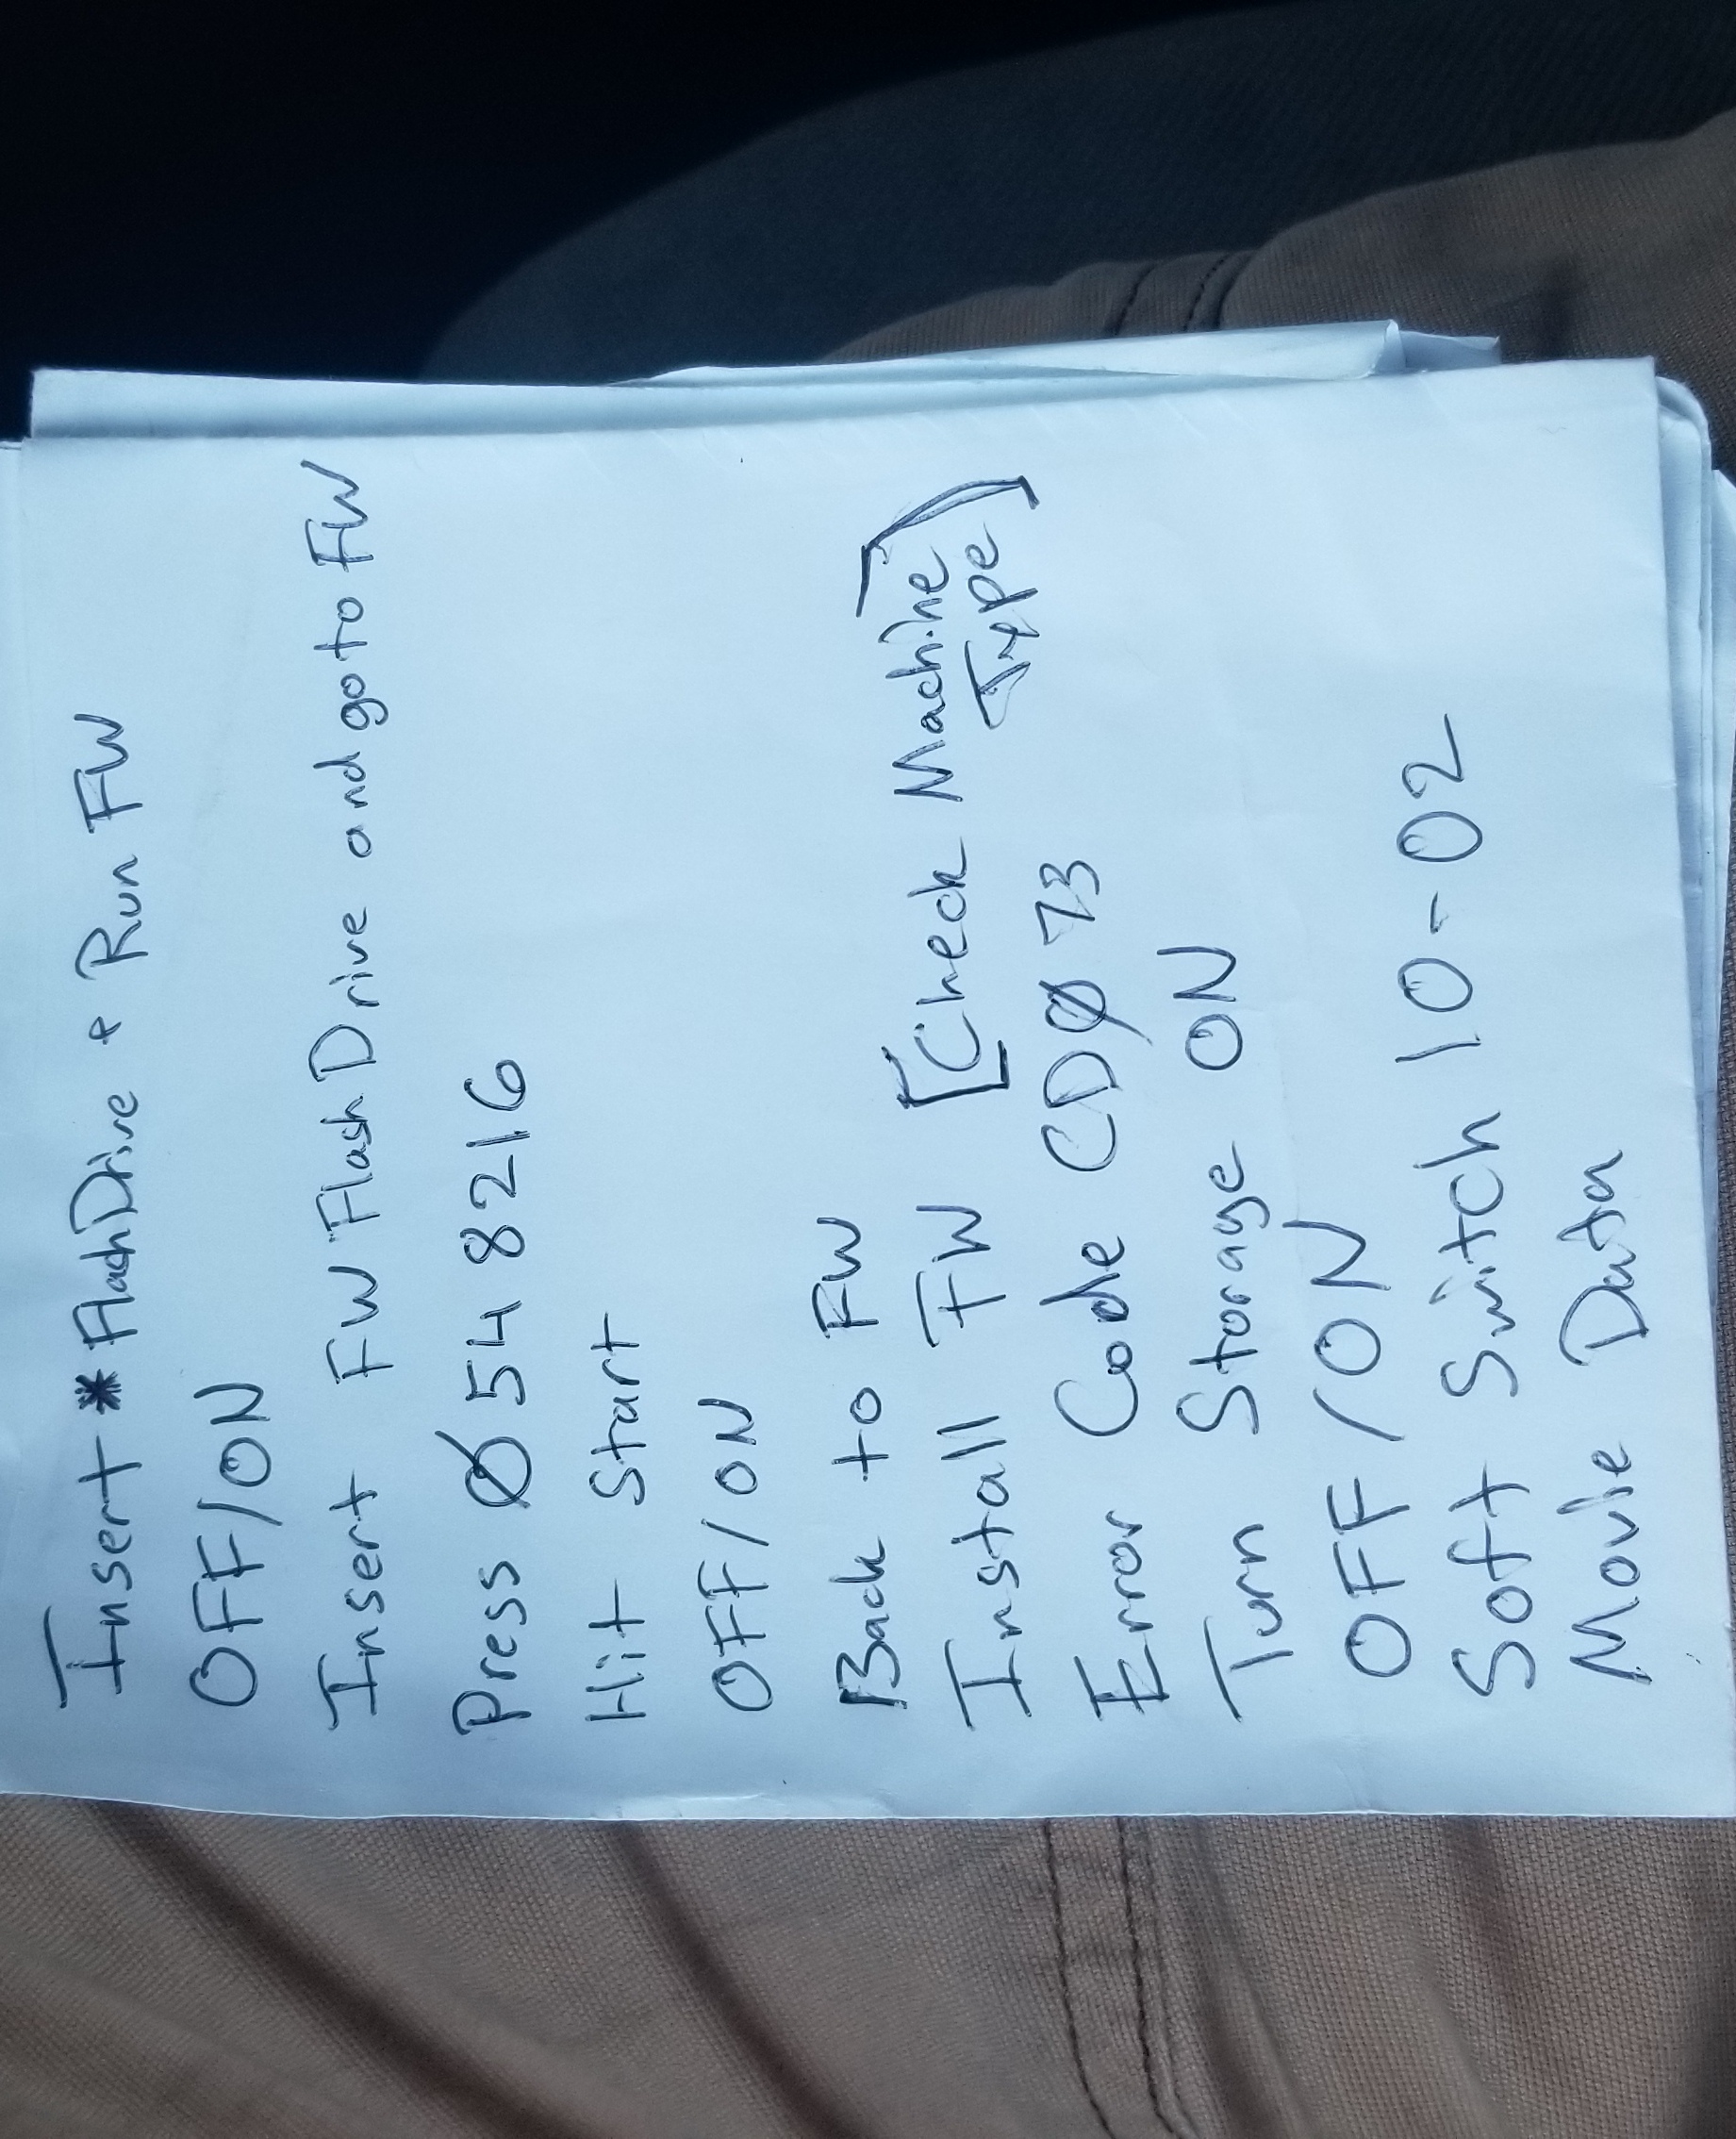 Insert * Flash Drive & Run FW
OFF/ON
Insert FW Flash Drive and go to FW
Press Ø 54 8216
Hit Start
OFF/ON
Back to FW
Install FW [Check Machine
Type]
Error Code CDØ73
Turn Storage ON
OFF/ON
Soft Switch 10-02
Movie Data